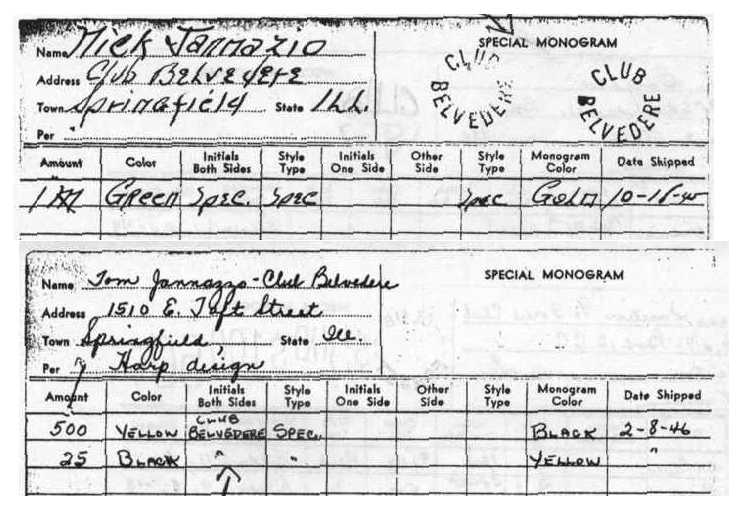 SPECIAL MONOGRAM
Name Mick Jannazio
CLUB BELVEDERE
CLUB BELVEDERE
Address Club BELVEDERE
Town Springfield State ILL.
Per
Amount Color Initials Both Sides Style Type Initials One Side Other Side Style Type Monogram Color Date Shipped
1M Green Spec. Spec Spec GOLD 10-16-45
SPECIAL MONOGRAM
Name Tom Jannazzo - Club Belvedere
Address 1510 E. Taft Street
Town Springfield State Ill.
Per Harp design
Amount Color Initials Both Sides Style Type Initials One Side Other Side Style Type Monogram Color Date Shipped
500 YELLOW CLUB BELVEDERE SPEC. BLACK 2-8-46
25 BLACK " " YELLOW "